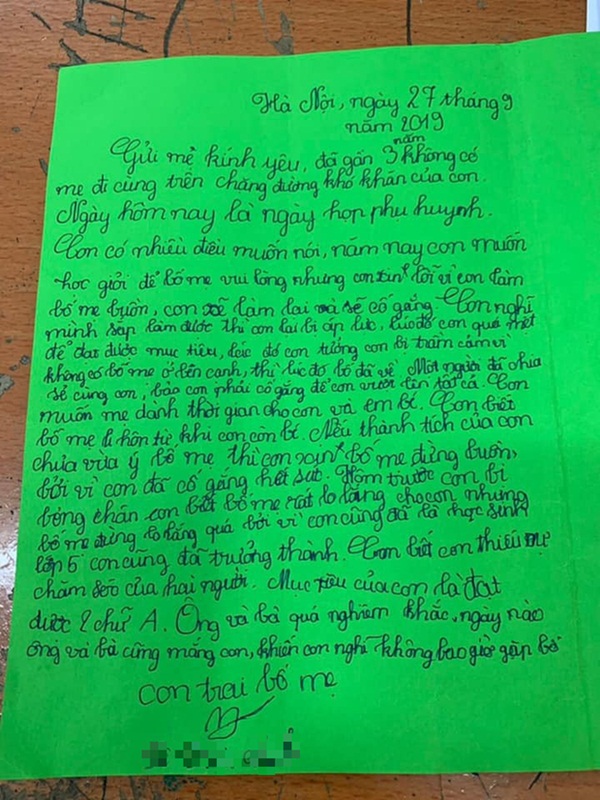 Hà Nội, ngày 27 tháng 9
năm 2019
năm
Gửi mẹ kính yêu, đã gần 3 không có
mẹ đi cùng trên chặng đường khó khăn của con.
Ngày hôm nay là ngày họp phụ huynh.
Con có nhiều điều muốn nói, năm nay con muốn
học giỏi để bố mẹ vui lòng nhưng con xin lỗi vì con làm
bố mẹ buồn, con sẽ làm lại và sẽ cố gắng. Con nghĩ
mình sắp làm được thì con lại bị áp lực, lúc đó con quá mệt
để đạt được mục tiêu, lúc đó con tưởng con bị trầm cảm vì
không có bố mẹ ở bên cạnh, thì lúc đó bố đã về. Một người đã chia
sẻ cùng con, bảo con phải cố gắng để con vượt lên tất cả. Con
muốn mẹ dành thời gian cho con và em bí. Con biết
bố mẹ li hôn từ khi con còn bé. Nếu thành tích của con
chưa vừa ý bố mẹ thì con xin bố mẹ đừng buồn,
bởi vì con đã cố gắng hết sức. Hôm trước con bị
bỏng chân con biết bố mẹ rất lo lắng cho con nhưng
bố mẹ đừng lo lắng quá bởi vì con cũng đã là học sinh
lớp 6 con cũng đã trưởng thành. Con biết con thiếu sự
chăm sóc của hai người. Mục tiêu của con là đạt
được 2 chữ A. Ông và bà quá nghiêm khắc, ngày nào
ông và bà cũng mắng con, khiến con nghĩ không bao giờ gặp bố
con trai bố mẹ